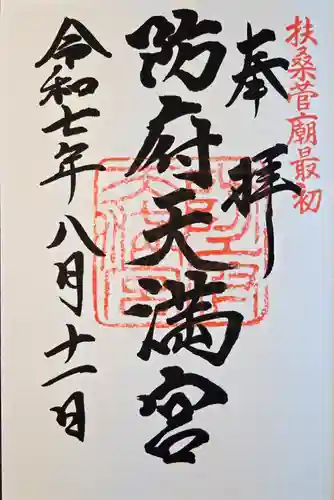 扶桑菅廟最初
奉拝
防府天満宮
令和七年八月十一日